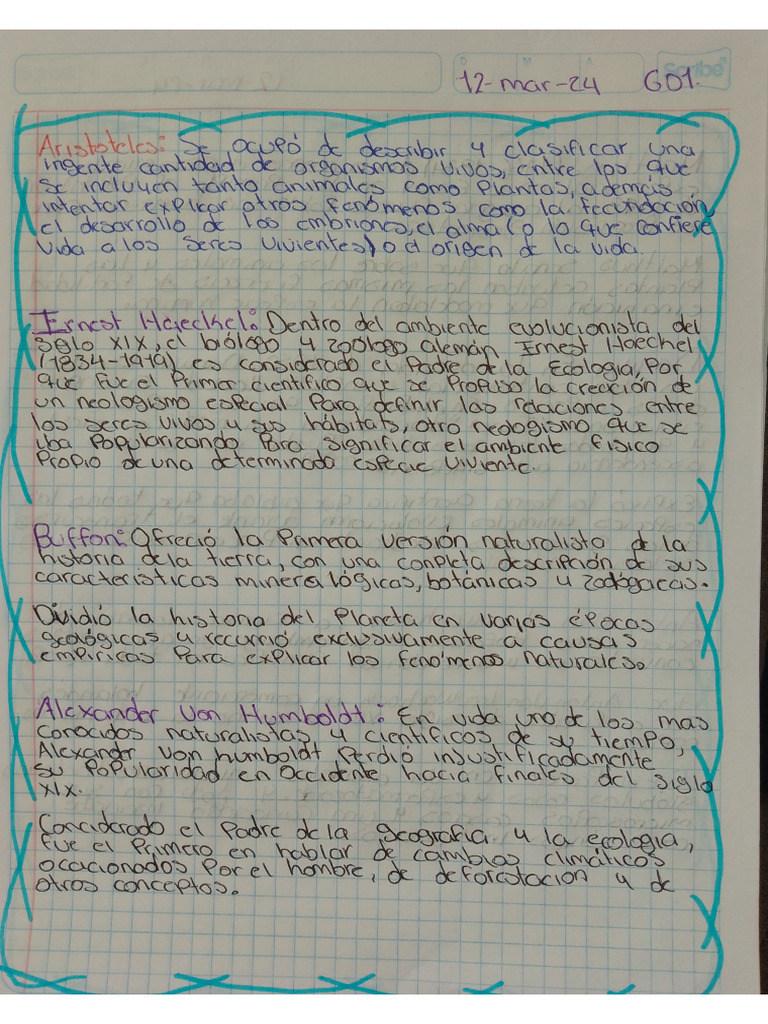 12-mar-24 G01.
Aristoteles: Se ocupó de describir y clasificar una
ingente cantidad de organismos vivos, entre los que
se incluyen tanto animales como plantas, además
intentar explicar otros fenómenos como la fecundación,
el desarrollo de los embriones, el alma (o lo que confiere
vida a los seres vivientes) o el origen de la vida.
Ernest Haeckel: Dentro del ambiente evolucionista, del
siglo XIX, el biólogo y zoólogo alemán Ernest Haeckel
(1834-1919) es considerado el Padre de la Ecologia, por
que fue el primer cientifico que se propuso la creación de
un neologismo especial para definir las relaciones entre
los seres vivos y sus hábitats, otro neologismo que se
iba popularizando para significar el ambiente fisico
propio de una determinada especie viviente.
Buffon: Ofreció la primera versión naturalista de la
historia de la tierra, con una conpleta descripción de sus
caracteristicas mineralógicas, botánicas y zoológicas.
Dividió la historia del planeta en varias épocas
geológicas y recurrió exclusivamente a causas
empíricas para explicar los fenómenos naturales.
Alexander Von Humboldt: En vida uno de los mas
conocidos naturalistas y cientificos de su tiempo,
Alexander von humboldt perdió insustificadamente
su popularidad en Occidente hacia finales del siglo
XIX.
Conciderado el padre de la geografia y la ecologia,
fue el primero en hablar de cambios climáticos
ocacionados por el hombre, de deforestacion y de
otros conceptos.